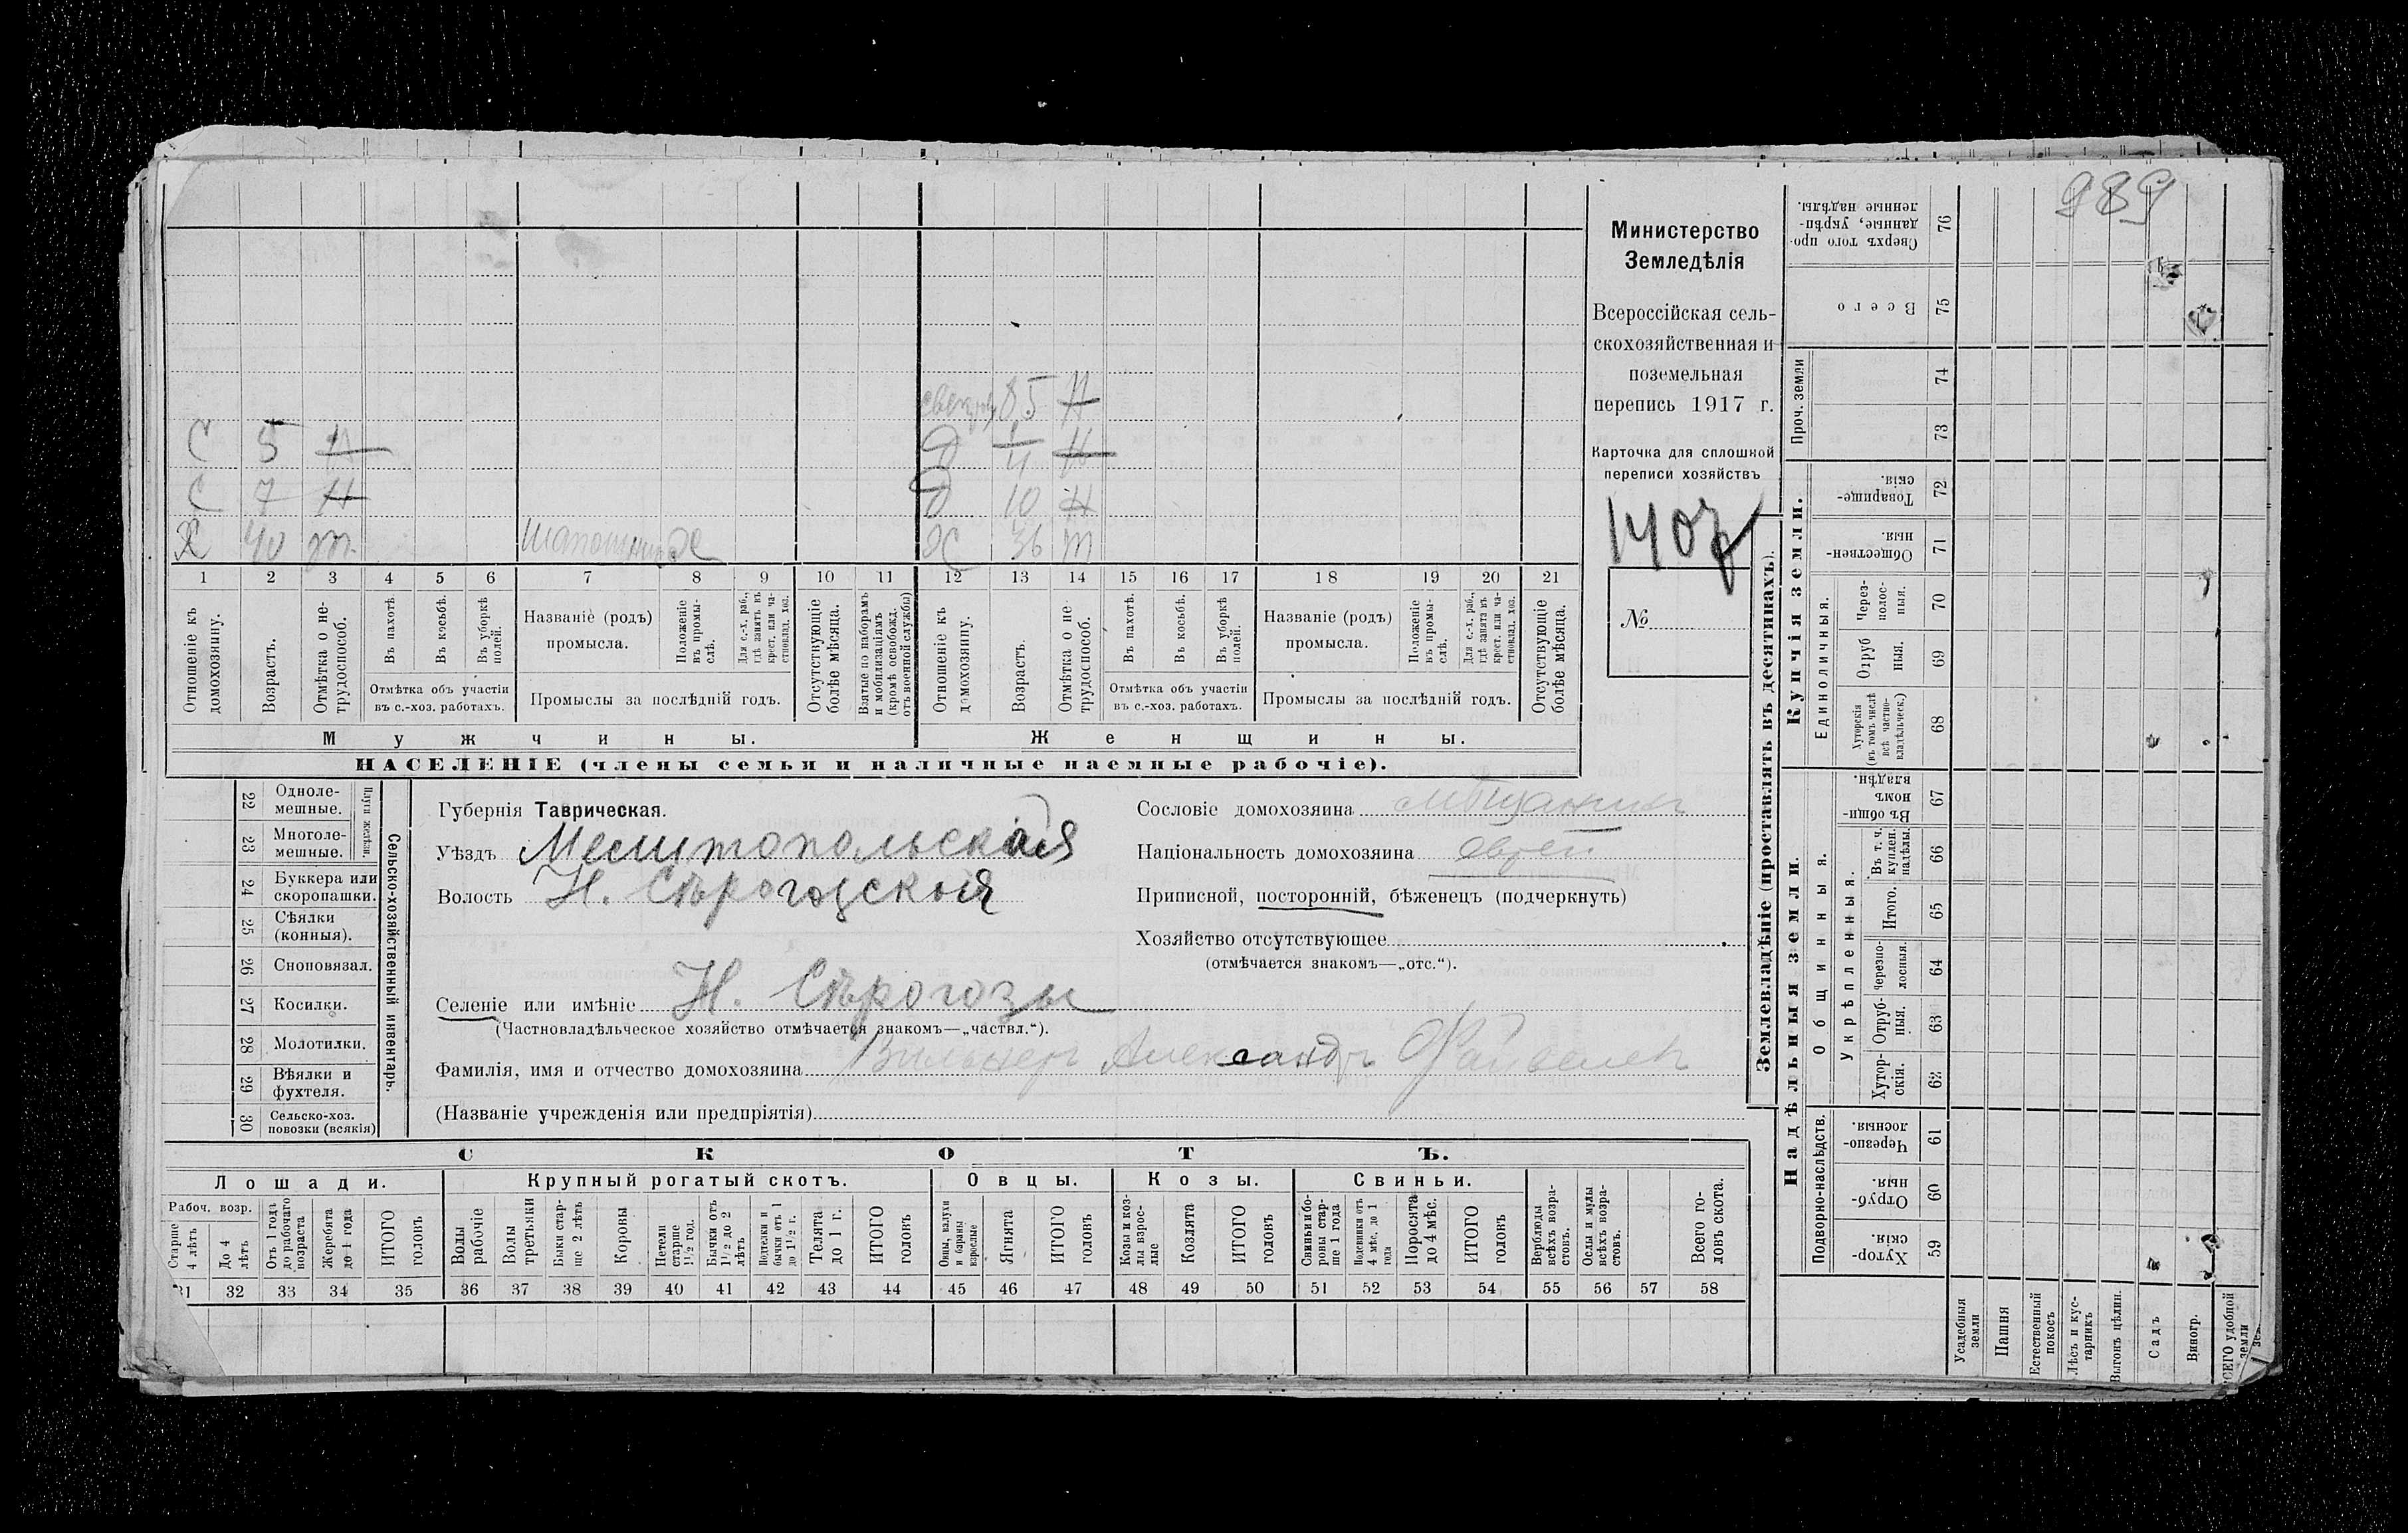 989
Министерство
Земледѣлія
Всероссійская сель-
скохозяйственная и
поземельная
перепись 1917 г.
Карточка для сплошной
переписи хозяйствъ
1407
№
свекровь 85 Н
С 5 Н
Д 4 Н
С 7 Н
Д 10 Н
Х 40 т.
Шапошник Х
Х 36 т
1 2 3 4 5 6 7 8 9 10 11 12 13 14 15 16 17 18 19 20 21
Отношеніе къ домохозяину.
Возрастъ.
Отмѣтка о не-трудоспособ.
Въ пахотѣ.
Въ косьбѣ.
Въ уборкѣ полей.
Отмѣтка объ участіи въ с.-хоз. работахъ.
Названіе (родъ) промысла.
Положеніе въ промы-слѣ.
Для с.-х. раб., гдѣ занятъ въ крест. или ча-стновлад. хоз.
Промыслы за послѣдній годъ.
Отсутствующіе болѣе мѣсяца.
Взятые по наборамъ и мобилизаціямъ (кромѣ освобожд. отъ военной службы)
Отношеніе къ домохозяину.
Возрастъ.
Отмѣтка о не-трудоспособ.
Въ пахотѣ.
Въ косьбѣ.
Въ уборкѣ полей.
Отмѣтка объ участіи въ с.-хоз. работахъ.
Названіе (родъ) промысла.
Положеніе въ промы-слѣ.
Для с.-х. раб., гдѣ занята въ крест. или ча-стновлад. хоз.
Промыслы за послѣдній годъ.
Отсутствующіе болѣе мѣсяца.
Мужчины.
Женщины.
НАСЕЛЕНІЕ (члены семьи и наличные наемные рабочіе).
22 Одноле-мешные.
23 Многоле-мешные.
Плуги желѣзн.
24 Буккера или скоропашки.
25 Сѣялки (конныя).
26 Сноповязал.
27 Косилки.
28 Молотилки.
29 Вѣялки и фухтеля.
30 Сельско-хоз. повозки (всякія)
Сельско-хозяйственный инвентарь.
Губернія Таврическая.
Уѣздъ Мелитопольская
Волость Н. Сѣрогозская
Селеніе или имѣніе Н. Сѣрогозы
(Частновладѣльческое хозяйство отмѣчается знакомъ—„частвл.“).
Фамилія, имя и отчество домохозяина Вильнеръ Александръ Файвелев
(Названіе учрежденія или предпріятія)
Сословіе домохозяина мѣщанинъ
Національность домохозяина еврей
Приписной, посторонній, бѣженецъ (подчеркнуть)
Хозяйство отсутствующее
(отмѣчается знакомъ—„отс.“).
СКОТЪ.
Лошади.
Крупный рогатый скотъ.
Овцы.
Козы.
Свиньи.
Рабоч. возр.
Старше 4 лѣтъ
До 4 лѣтъ
Отъ 1 года до рабочаго возраста
Жеребята до 1 года
ИТОГО головъ
Волы рабочіе
Волы третьяки
Быки стар-ше 2 лѣтъ
Коровы
Нетели старше 1½ год.
Бычки отъ 1½ до 2 лѣтъ
Подтелки и бычки отъ 1 до 1½ г.
Телята до 1 г.
ИТОГО головъ
Овцы, валухи и бараны взрослые
Ягнята
ИТОГО головъ
Козы и коз-лы взрос-лые
Козлята
ИТОГО головъ
Свиньи и бо-ровы стар-ше 1 года
Подсвинки отъ 4 мѣс. до 1 года
Поросята до 4 мѣс.
ИТОГО головъ
Верблюды всѣхъ возра-стовъ.
Ослы и мулы всѣхъ возра-стовъ.
Всего го-ловъ скота.
31 32 33 34 35 36 37 38 39 40 41 42 43 44 45 46 47 48 49 50 51 52 53 54 55 56 57 58
Землевладѣніе (проставлять въ десятинахъ).
Купчія земли.
Надѣльныя земли.
Сверхъ того про-данные, укрѣп-ленные надѣлы. 76
Всего 75
Проч. земли
74
73
Товарище-скія. 72
Обществен-ныя. 71
Единоличныя.
Через-полос-ныя. 70
Отруб-ныя. 69
Хуторскія (въ томъ числѣ всѣ частно-владѣльческ.) 68
Общинныя.
Въ общин-номъ владѣн. 67
Укрѣпленныя.
Въ т. ч. куплен. надѣлы. 66
Итого. 65
Черезпо-лосныя. 64
Отруб-ныя. 63
Хутор-скія. 62
Подворно-наслѣдств.
Черезпо-лосныя. 61
Отруб-ныя. 60
Хутор-скія. 59
Усадебныя земли
Пашня
Естественный покосъ
Лѣсъ и кус-тарникъ
Выгонъ цѣлин.
Садъ
Виногр.
ВСЕГО удобной земли